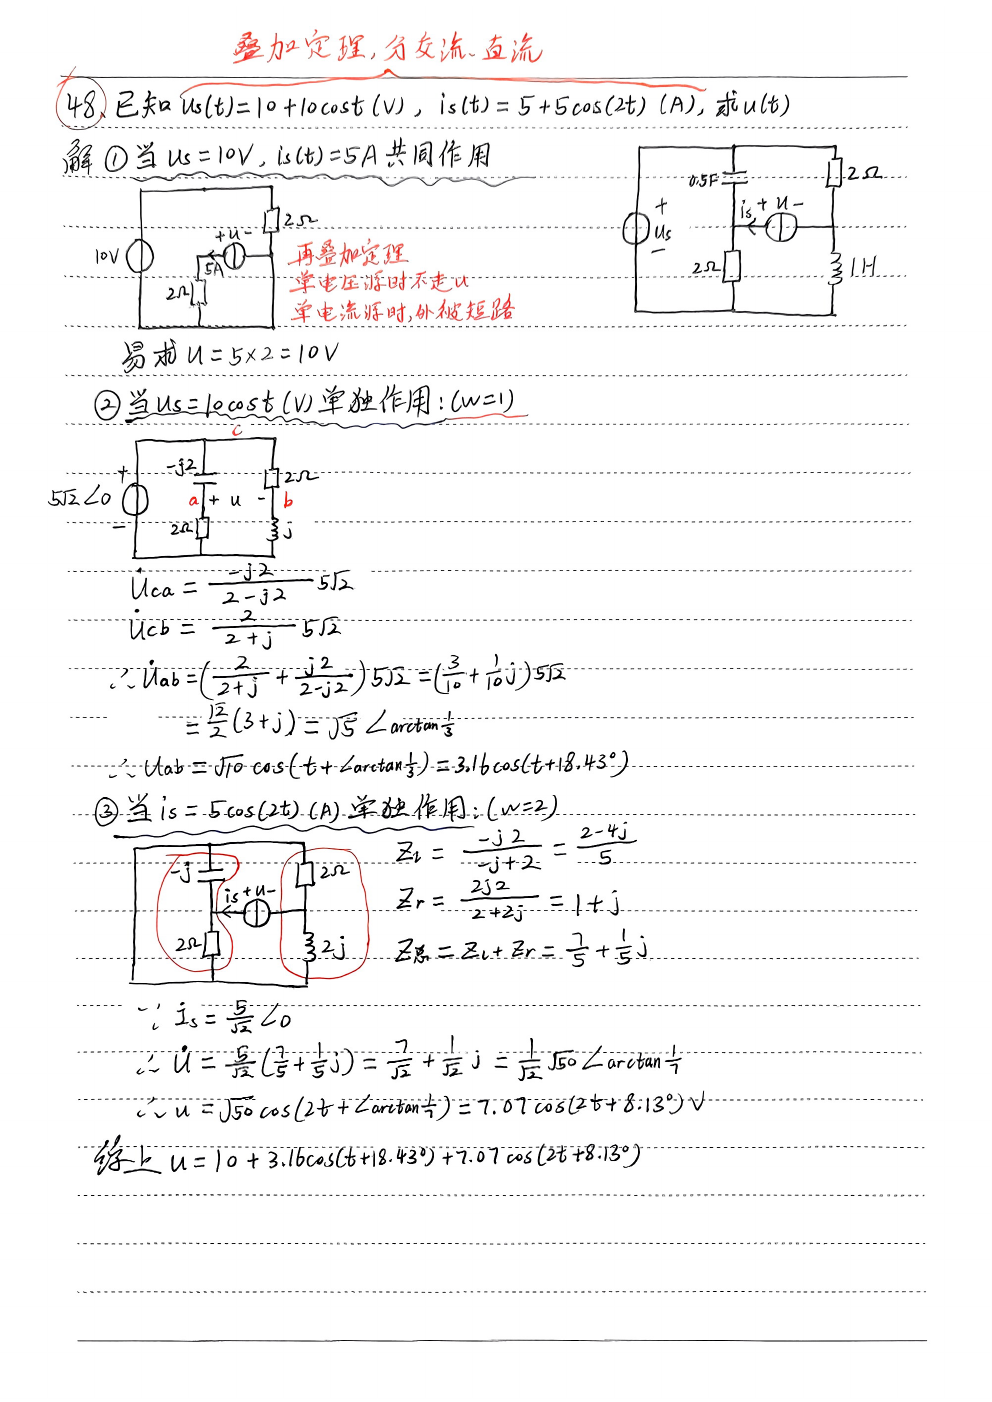 叠加定理,分交流、直流
48、已知 us(t)=10+10cost (V), is(t)=5+5cos(2t) (A), 求u(t)
解 ①当 us=10V, is(t)=5A 共同作用
10V
2Ω
+u-
5A
2Ω
再叠加定理
单电压源时不走u
单电流源时,外被短路
0.5F
2Ω
+
us
-
is
+u-
2Ω
1H
易求 u=5×2=10V
②当us=10cost (V) 单独作用:(w=1)
c
+
5√2∠0
-
-j2
2Ω
a + u - b
2Ω
j
U̇ca = -j2/(2-j2) 5√2
U̇cb = 2/(2+j) 5√2
∴ U̇ab=(2/(2+j) + j2/(2-j2)) 5√2 = (3/10 + 1/10 j) 5√2
= √2/2 (3+j) = √5 ∠arctan 1/3
∴ Uab = √10 cos(t+∠arctan 1/3) = 3.16cos(t+18.43°)
③当 is = 5cos(2t) (A) 单独作用:(w=2)
-j
is
+u-
2Ω
2Ω
2j
Zl = -j2/(-j+2) = (2-4j)/5
Zr = 2j2/(2+2j) = 1+j
Z总 = Zl+Zr = 7/5 + 1/5 j
∵ İs = 5/√2 ∠0
∴ U̇ = 5/√2 (7/5 + 1/5 j) = 7/√2 + 1/√2 j = 1/√2 √50 ∠arctan 1/7
∴ u = √50 cos(2t+∠arctan 1/7) = 7.07cos(2t+8.13°) V
综上 u = 10 + 3.16cos(t+18.43°) + 7.07cos(2t+8.13°)